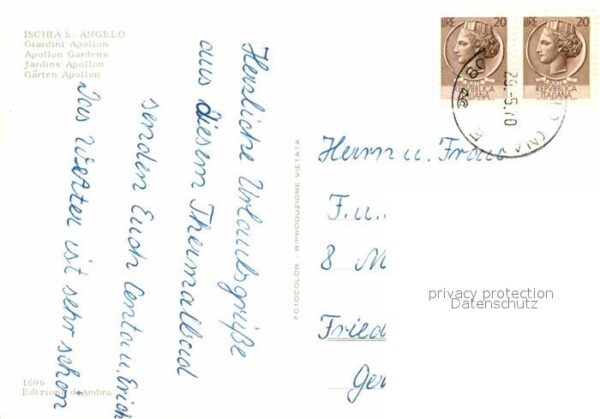 ISCHIA S. ANGELO
Giardini Apollon
Apollon Gardens
Jardins Apollon
Gärten Apollon
Herzliche Urlaubsgrüße
aus diesem Thermalbad
senden Euch Centa u. Erich
Das Wetter ist sehr schön
1696
Edizione d'Ambra
FOTOCOLOR - RIPRODUZIONE VIETATA
LIRE 20
REPVBBLICA
ITALIANA
LIRE 20
REPVBBLICA
ITALIANA
26.-5.70
Herrn u. Frau
F. u.
8 M
Fried
Ger
privacy protection
Datenschutz